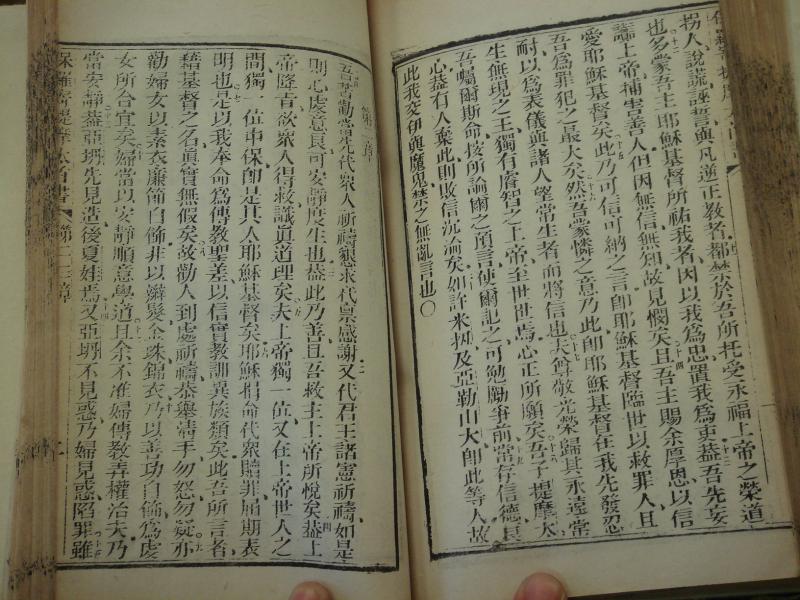 拐人、說謊、誣誓、與凡逆正教者、都禁於吾所托受永福上帝之榮道
也多蒙吾主耶穌基督所祐我者因以我為忠置我為吏蓋吾先妄
讟上帝捕害善人但因無信無知故見憫矣且吾主賜余厚恩以信
愛耶穌基督矣此乃可信可納之言卽耶穌基督臨世以救罪人且
吾為罪犯之最大矣然吾蒙憐之意乃此卽耶穌基督在我先發忍
耐以為表儀與諸人望常生者而將信也夫尊敬光榮歸其永遠常
生無現之王獨有睿智之上帝至世世焉心正所願矣吾子提摩太
吾囑爾斯命按所論爾之預言使爾記之可勉勵爭前常存信德其
心蓋有人棄此則敗信沉淪矣如許米㧞及亞勒山大卽此等人故
此我交伊與魔鬼禁之無亂言也○
第二章
吾首勸當先代衆人祈禱懇求代禀感謝又代君王諸憲祈禱如是
則心處意良可安靜度生也蓋此乃善且吾救主上帝所悅矣蓋上
帝隆旨欲衆人得救識眞道理矣夫上帝獨一位又在上帝世人之
間獨一位中保卽是其人耶穌基督矣耶穌捐命代衆贖罪屆期表
明也是以我奉命為傳教聖差以信實教訓異族類矣此吾所言者
藉基督之名眞實無假矣故勸人到處祈禱恭舉清手勿怒勿疑亦
勸婦女以素衣廉節自飾非以辮髮金珠錦衣乃以善功自飾為虔
女所合宜矣婦當以安靜順意學道且余不准婦傳教弄權治夫乃
當安靜蓋亞坍先見造後夏娃焉又亞坍不見惑乃婦見惑陷罪雖
保羅寄提摩太首書 第二三章